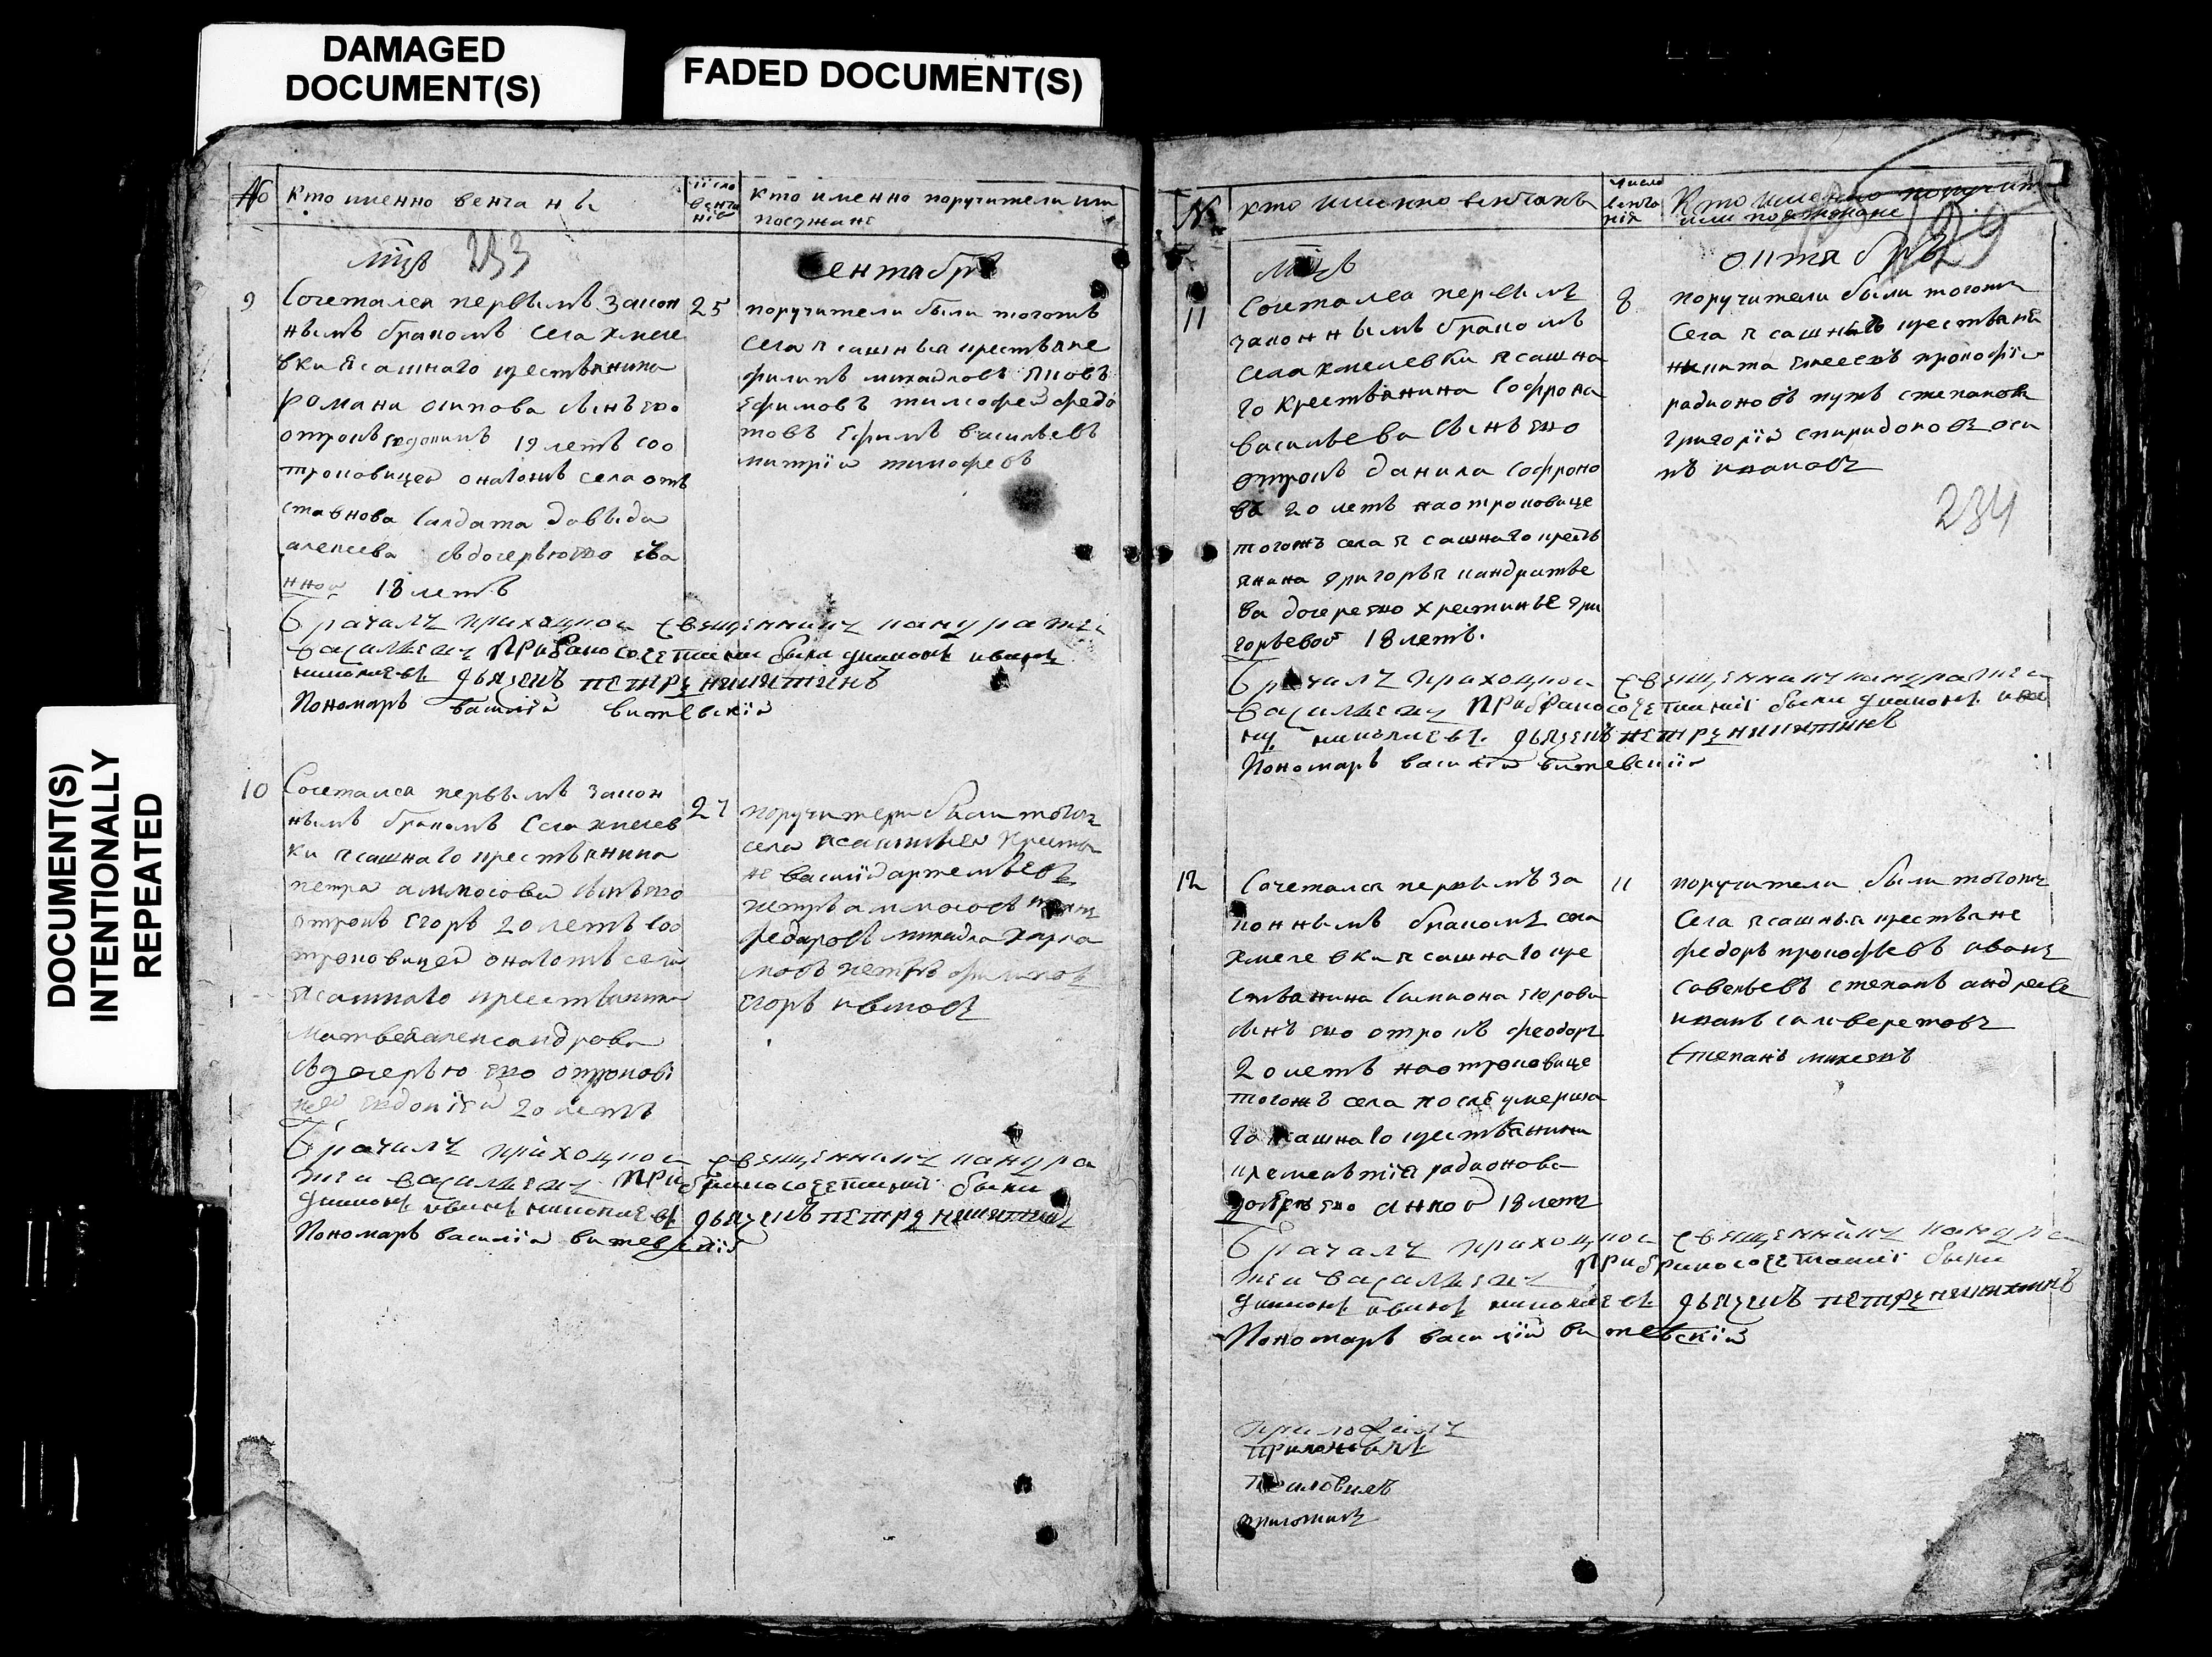 DAMAGED
DOCUMENT(S)
FADED DOCUMENT(S)
DOCUMENT(S)
INTENTIONALLY
REPEATED
№
кто именно венчаны
число венчанія
кто именно поручители или
поезжане
мцъ 233
сентябръ
9
Сочетался первымъ закон
нымъ бракомъ села хмеле
вки ясашнаго крестьянина
романа осипова сынъ ево
отрокъ евдокимъ 19 летъ соо
троковицей онагожъ села отъ
ставнова салдата давыда
алексева съдочерью ево
нной 18 летъ
25
поручители были тогожъ
села ясашныя крестьяне
филипъ михайловъ яковъ
ефимовъ тимофей федо
товъ ефимъ васильевъ
митрій тимофевъ
Бράчалъ приходной священникъ кандратей
васильевъ При бракосочетании были диаконъ иванъ
николаевъ дьячекъ петръ никитинъ
Пономарь василій витевскій
10
Сочетался первымъ закон
нымъ бракомъ села хмелев
ки ясашнаго крестьянина
петра аммосова сынъ ево
отрокъ егоръ 20 летъ соо
троковицей онагожъ села
ясашнаго крестьянина
матвея александрова
съдочерью ево отрокови
цей евдокіей 20 летъ
27
поручители были тогожъ
села ясашныя крестья
не василій артемьевъ
петръ аммосовъ
федаровъ михайла харла
мовъ петръ филиповъ
егоръ
Брачалъ приходной священникъ кандра
теи васильевъ При бракосочетании были
диаконъ иванъ николаевъ дьячекъ петръ никитинъ
Пономарь василій витевскій
№
кто именно венчанъ
число венчанія
Кто именно поручит
или поезжане
129
мцъ
октябръ
11
Сочетался первымъ
законнымъ бракомъ
села хмелевки ясашна
го крестьянина софрона
васильева сынъ ево
отрокъ данила софроно
въ 20 летъ наотроковице
тогожъ села ясашнаго кресть
янина григорья кандратье
ва дочере ево хрестинье гри
горьевой 18 летъ.
8
поручители были тогожъ
села ясашныя крестьяня
никита прокофій
радионовъ степановъ
григорій спиридоновъ оси
пъ ивановъ
234
Брачалъ приходной священникъ кандратеи
васильевъ При бракосочетании были диаконъ ива
нъ николаевъ. дьячекъ петръ никитинъ
Пономарь василій витевскій
12
Сочетался первымъ за
коннымъ бракомъ села
хмелевки ясашнаго кре
стьянина симиона егорова
сынъ ево отрокъ феодоръ
20 летъ наотроковице
тогожъ села после умерша
го ясашнаго крестьянина
климентия радионова
дочере ево анной 18 летъ
11
поручители были тогожъ
села ясашныя крестьяне
федоръ прокофьевъ иванъ
савельевъ степанъ андреевъ
иванъ
степанъ михеевъ
Брачалъ приходной священникъ кандра
теи васильевъ При бракосочетании были
диаконъ иванъ николаевъ дьячекъ петръ никитинъ
Пономарь василій витевскій